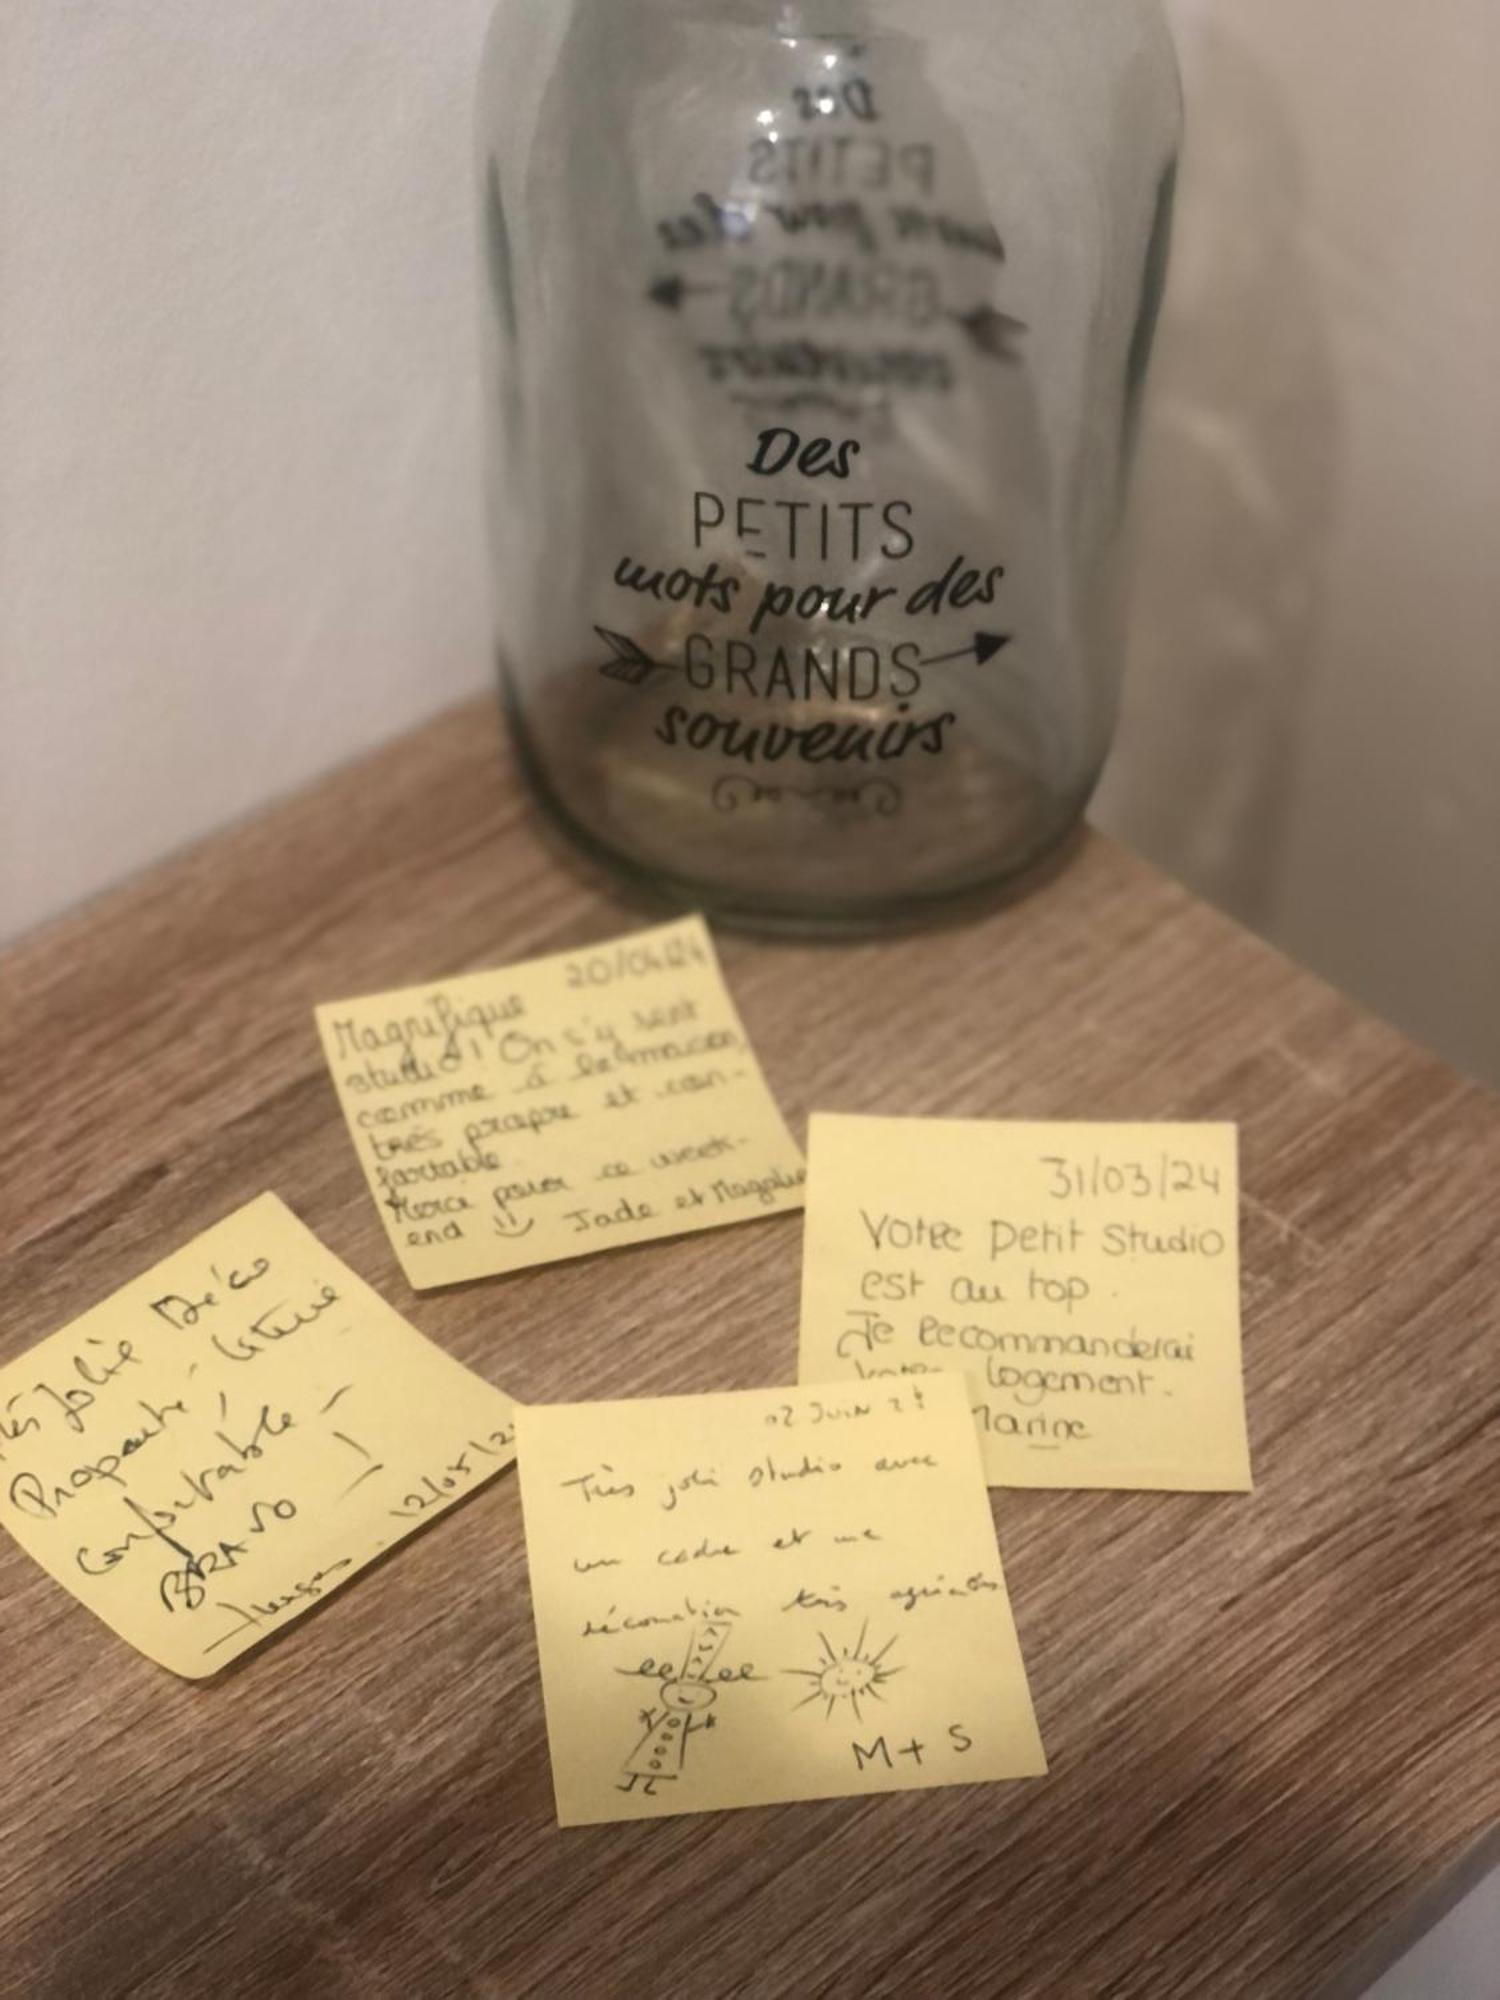 Des
PETITS
mots pour des
GRANDS
souvenirs
20/04/24
Magnifique
studio! On s'y sent
comme à la maison,
très propre et con-
fortable.
Merci pour ce week-
end Jade et Magalie
31/03/24
Votre petit Studio
est au top.
Je recommanderai
logement.
Marine
Jolie Déco
Propreté, literie
Confortable -
BRAVO !
02 Juin 24
Très joli studio avec
un cadre et une
décoration très agréables
M + S